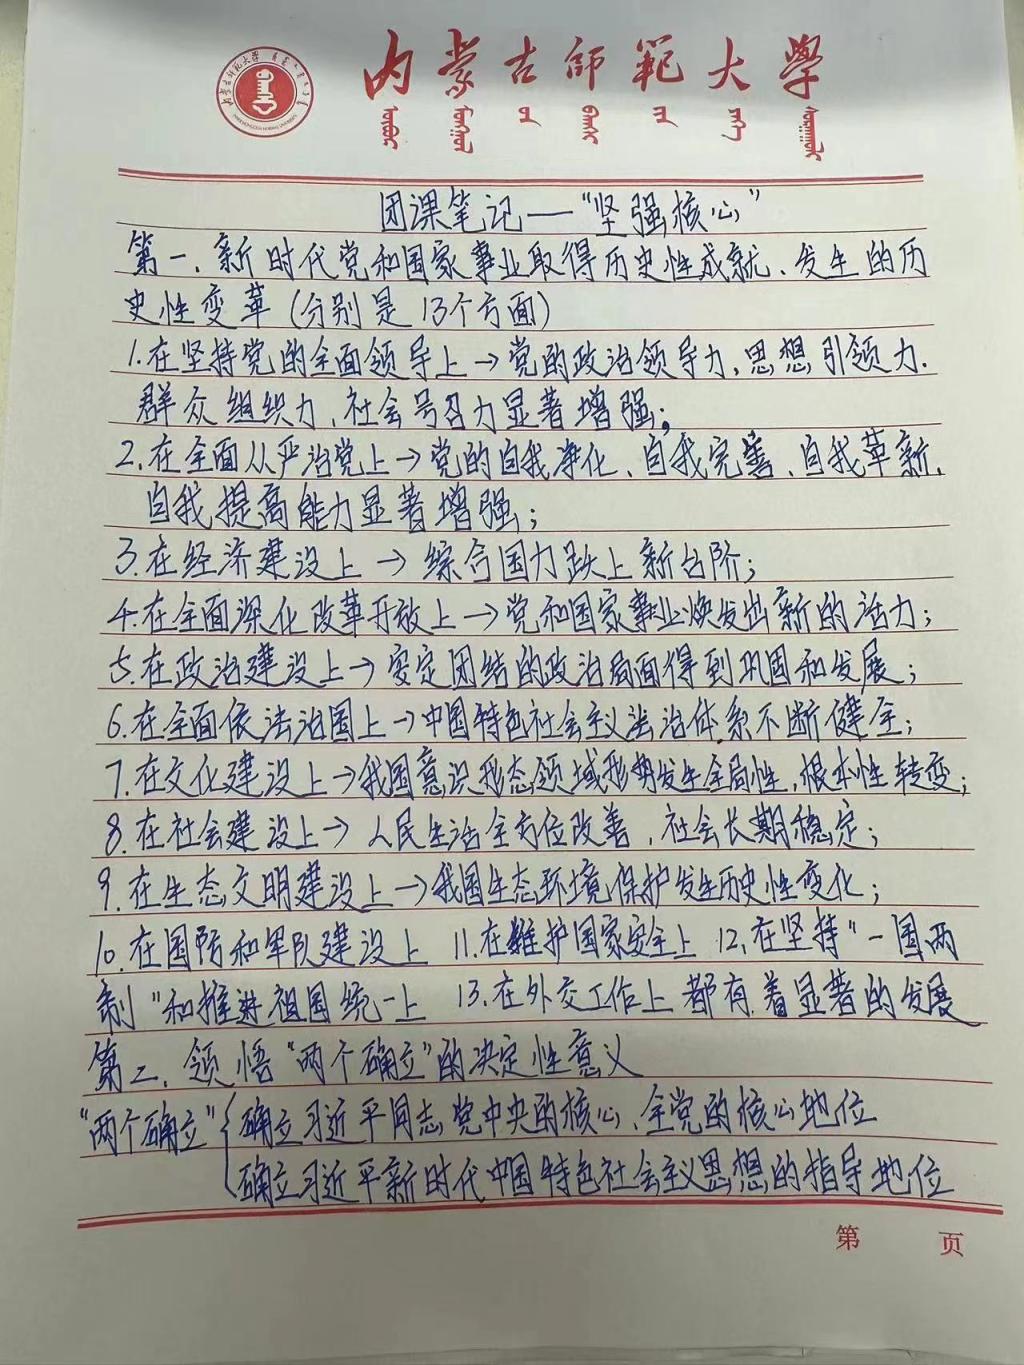 内蒙古师范大学
团课笔记——“坚强核心”
第一、新时代党和国家事业取得历史性成就、发生的历
史性变革(分别是13个方面)
1.在坚持党的全面领导上→党的政治领导力、思想引领力、
群众组织力、社会号召力显著增强;
2.在全面从严治党上→党的自我净化、自我完善、自我革新、
自我提高能力显著增强;
3.在经济建设上→综合国力跃上新台阶;
4.在全面深化改革开放上→党和国家事业焕发出新的活力;
5.在政治建设上→安定团结的政治局面得到巩固和发展;
6.在全面依法治国上→中国特色社会主义法治体系不断健全;
7.在文化建设上→我国意识形态领域形势发生全局性,根本性转变;
8.在社会建设上→人民生活全方位改善,社会长期稳定;
9.在生态文明建设上→我国生态环境保护发生历史性变化;
10.在国防和军队建设上 11.在维护国家安全上 12.在坚持“一国两
制”和推进祖国统一上 13.在外交工作上 都有着显著的发展
第二、领悟“两个确立”的决定性意义
“两个确立”{确立习近平同志党中央的核心、全党的核心地位
确立习近平新时代中国特色社会主义思想的指导地位
第 页